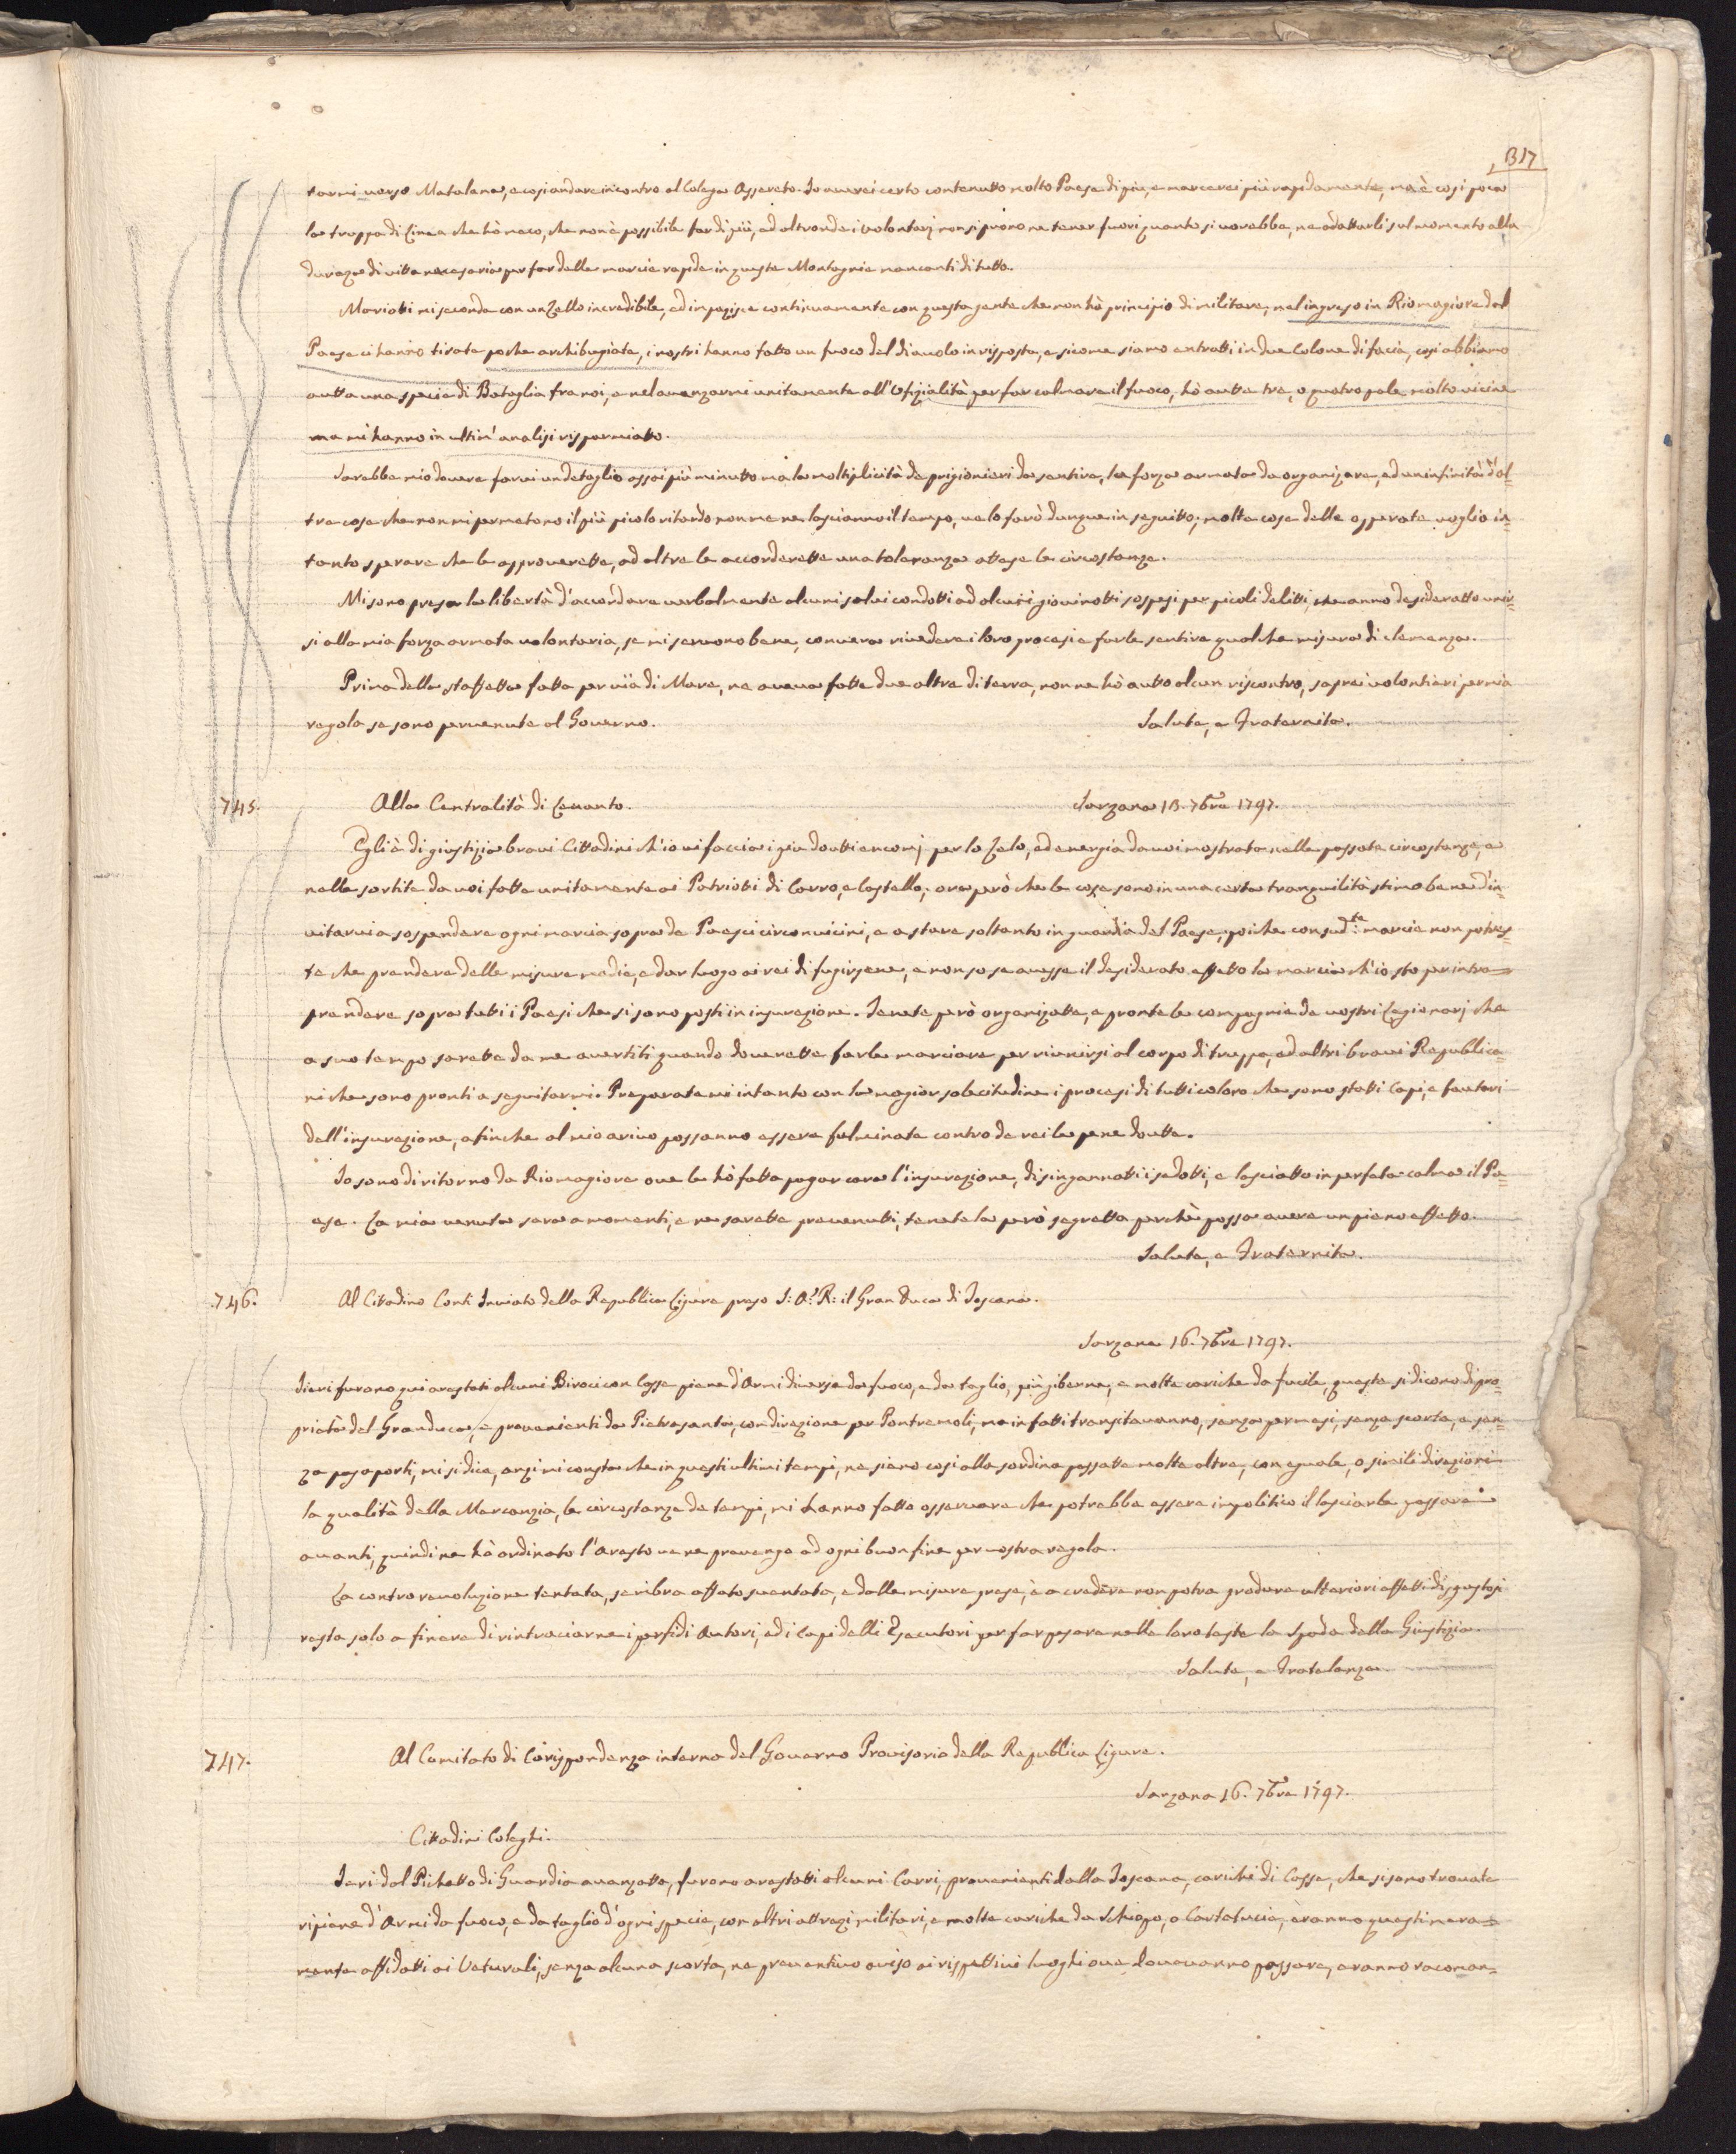 B17
tarmi verso Matalana, e cosi andare incontro al Colega Assereto. Io averei certo contenutto molto Paese di più, e marcerei più rapidamente, ma è cosi poca
la truppa di Linea che hò meco, che non è possibile far di più, ed altronde i volontarj non si prono ne tener fuori quanto si vorebbe, ne adattarli sul momento alla
durezze di vitta necesaria per far delle marcie rapide in queste Montagnie mancanti di tutto.
Mariotti mi seconda con un Zello incredibile, ed impazisce continuamente con questa gente che non hà principio di militare, nel ingreso in Riomagiore dal
Paese ci hanno tirate poche archibugiate, i nostri hanno fatto un fuoco del diavolo in rissposta, e sicome siamo entratti in due Colone di facia, cosi abbiamo
autta una specie di Bataglia fra noi, e nel avanzarmi unitamente all'Ofizialità per far calmare il fuoco, hò autte tre, o quatro pale molto vicine
ma mi hanno in ultim' analisi risparmiatto.
Sarebbe mio dovere farvi un detaglio assai più minutto ma la moltiplicità de prigionieri da sentire, la forza armata da organizare, ed un infinità d'al=
tre cose che non mi permetono il più picolo ritardo non me ne lascianno il tempo, ve lo farò dunque in seguitto; molte cose delle opperate voglio in=
tanto sperare che le approverette, ed altre le accorderette una toleranza attese le circostanze.
Mi sono preso la libertà d'accordare verbalmente alcuni salvi condotti ad alcuni giovinotti sospesi per picoli delitti, che anno desideratto unir=
si alla mia forza armata volontaria, se mi servono bene, converà rivedere i loro procesi e farle sentire qualche misura di clemenza.
Prima della staffetta fatta per vià di Mare, ne aveva fatte due altre di terra, non ne hò autto alcun riscontro, saprei volontieri per mia
regola se sono pervenute al Governo. Salute, e Fraternita.
745. Alla Centralità di Levanto. Sarzana 13. 7bre 1797.
Egli è di giustizia bravi Cittadini ch'io vi faccia i più doutti encomj per lo Zelo, ed energia da voi mostrata nelle passate circostanze, e
nelle sortite da voi fatte unitamente ai Patriotti di Carro, e Castello; ora però che le cose sono in una certa tranquilità stimo bene d'in=
vitarvi a sospendere ogni marcia sopra de Paesi circonvicini, e a stare soltanto in guardia del Paese, poiche con sudte marcie non potres=
te che prendere delle misure medie, e dar luogo ai rei di fugirsene, e non so se avesse il desiderato effetto la marcia ch'io sto per intra=
prendere sopra tutti i Paesi che si sono posti in insurezione. Tenete però organizatte, e pronte le compagnie de vostri Legionarj che
a suo tempo sarette da me avertiti quando doverette farle marciare per riunirsi al corpo di truppa, ed altri bravi Republica=
ni che sono pronti a seguitarmi. Preparatemi intanto con la magior solecitudine i procesi di tutti coloro che sono statti Capi, e fautori
dell'insurezione, afinche al mio arivo possanno essere fulminate contro de rei le pene doutte.
Io sono di ritorno da Riomagiore ove le hò fatta pagar cara l'insurezione, disingannatti i sedotti, e lasciatto in perfeta calma il Pa=
ese. La mia venuta sara a momenti, e ne sarette prevenutti, tenetela però segretta perchè possa avere un pieno effetto.
Salute, e Fraternita.
746. Al Citadino Conti Inviato della Republica Ligure preso S: A: R: il Gran Duca di Toscana.
Sarzana 16. 7bre 1797.
Iieri furono qui arestati alcuni Biroci con Casse piene d'Armi diverse da fuoco, e da taglio, più giberne, e molte cariche da fucile, queste si dicono di pro=
prietà del Granduca, e provenienti da Pietrasanta, con direzione per Pontremoli, ma in fatti transitavanno, senza permesi, senza scorta, e sen=
za pasaporti, mi si dice, anzi mi consta che in questi ultimi tempi, ne siano cosi alla sordina passatte molte altre, con eguale, o simili direzioni
la qualità della Mercanzia, le circostanze de tempi, mi hanno fatto osservare che potrebbe essere impolitico il lasciarle passare
avanti, quindi ne hò ordinato l'aresto ve ne prevengo ad ogni buon fine per vostra regola.
La contro revoluzione tentata, sembra affato sventata, e dalle misure prese, è a credere non potra produre ulteriori effetti disgustosi
resta solo a finere di rintraciarne i perfidi Autori, ed i Capi delli Esecutori per far pesare nelle loro teste la Spada della Giustizia.
Salute, e Fratelanza.
747. Al Comitato di Corispondenza interna del Governo Provisorio della Republica Ligure.
Sarzana 16. 7bre 1797.
Cittadini Coleghi.
Ieri dal Pichetto di Guardia avanzatto, furono arestatti alcuni Carri, provenienti dalla Toscana, carichi di Casse, che si sono trovate
ripiene d'Armi da fuoco, e da taglio d'ogni specie, con altri attrezi militari, e molte cariche da Schiopo, o Cartatucie, eranno questi mera=
mente affidatti ai Veturali, senza alcuna scorta, ne preventivo aviso ai rispettivi luoghi ove dovevanno passare, eranno racoman=